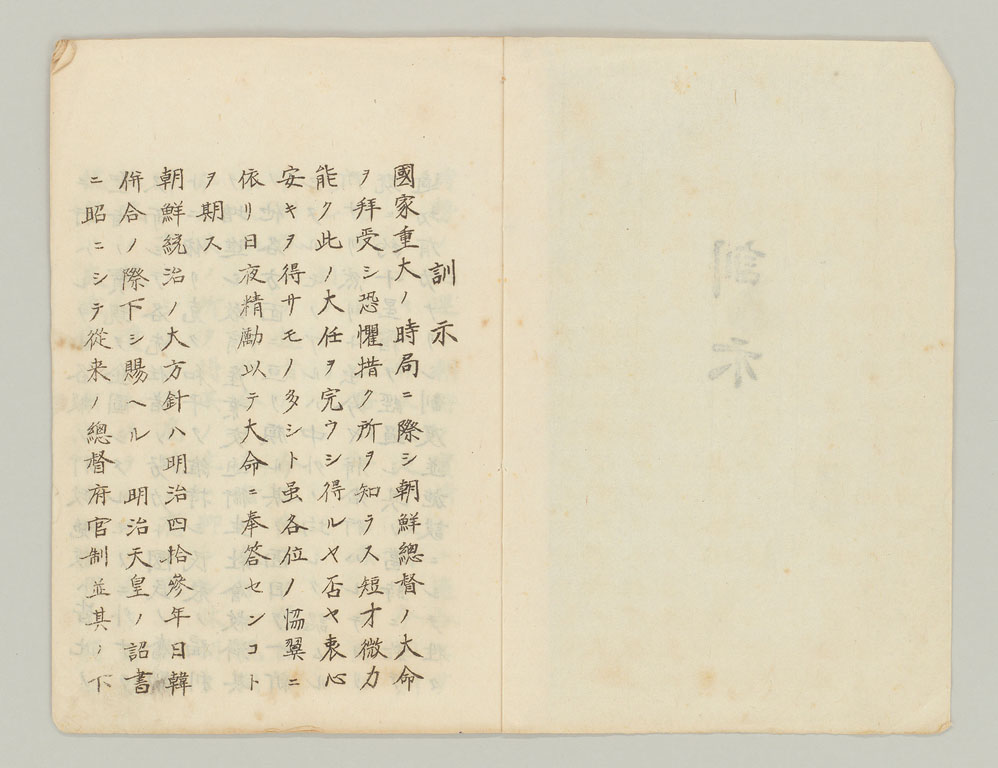 訓示
國家重大ノ時局ニ際シ朝鮮總督ノ大命
ヲ拜受シ恐懼措ク所ヲ知ラス短才微力
能ク此ノ大任ヲ完ウシ得ルヤ否ヤ衷心
安キヲ得サモノ多シト虽各位ノ恊翼ニ
依リ日夜精勵以テ大命ニ奉答センコト
ヲ期ス
朝鮮統治ノ大方針ハ明治四拾參年日韓
併合ノ際下シ賜ヘル 明治天皇ノ詔書
ニ昭ニシテ從来ノ總督府官制並其ノ下
訓示